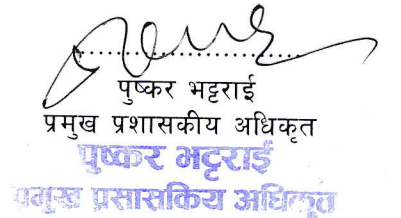 पुष्कर भट्टराई
प्रमुख प्रशासकीय अधिकृत
पुष्कर भट्टराई
प्रमुख प्रसासकिय अधिकृत